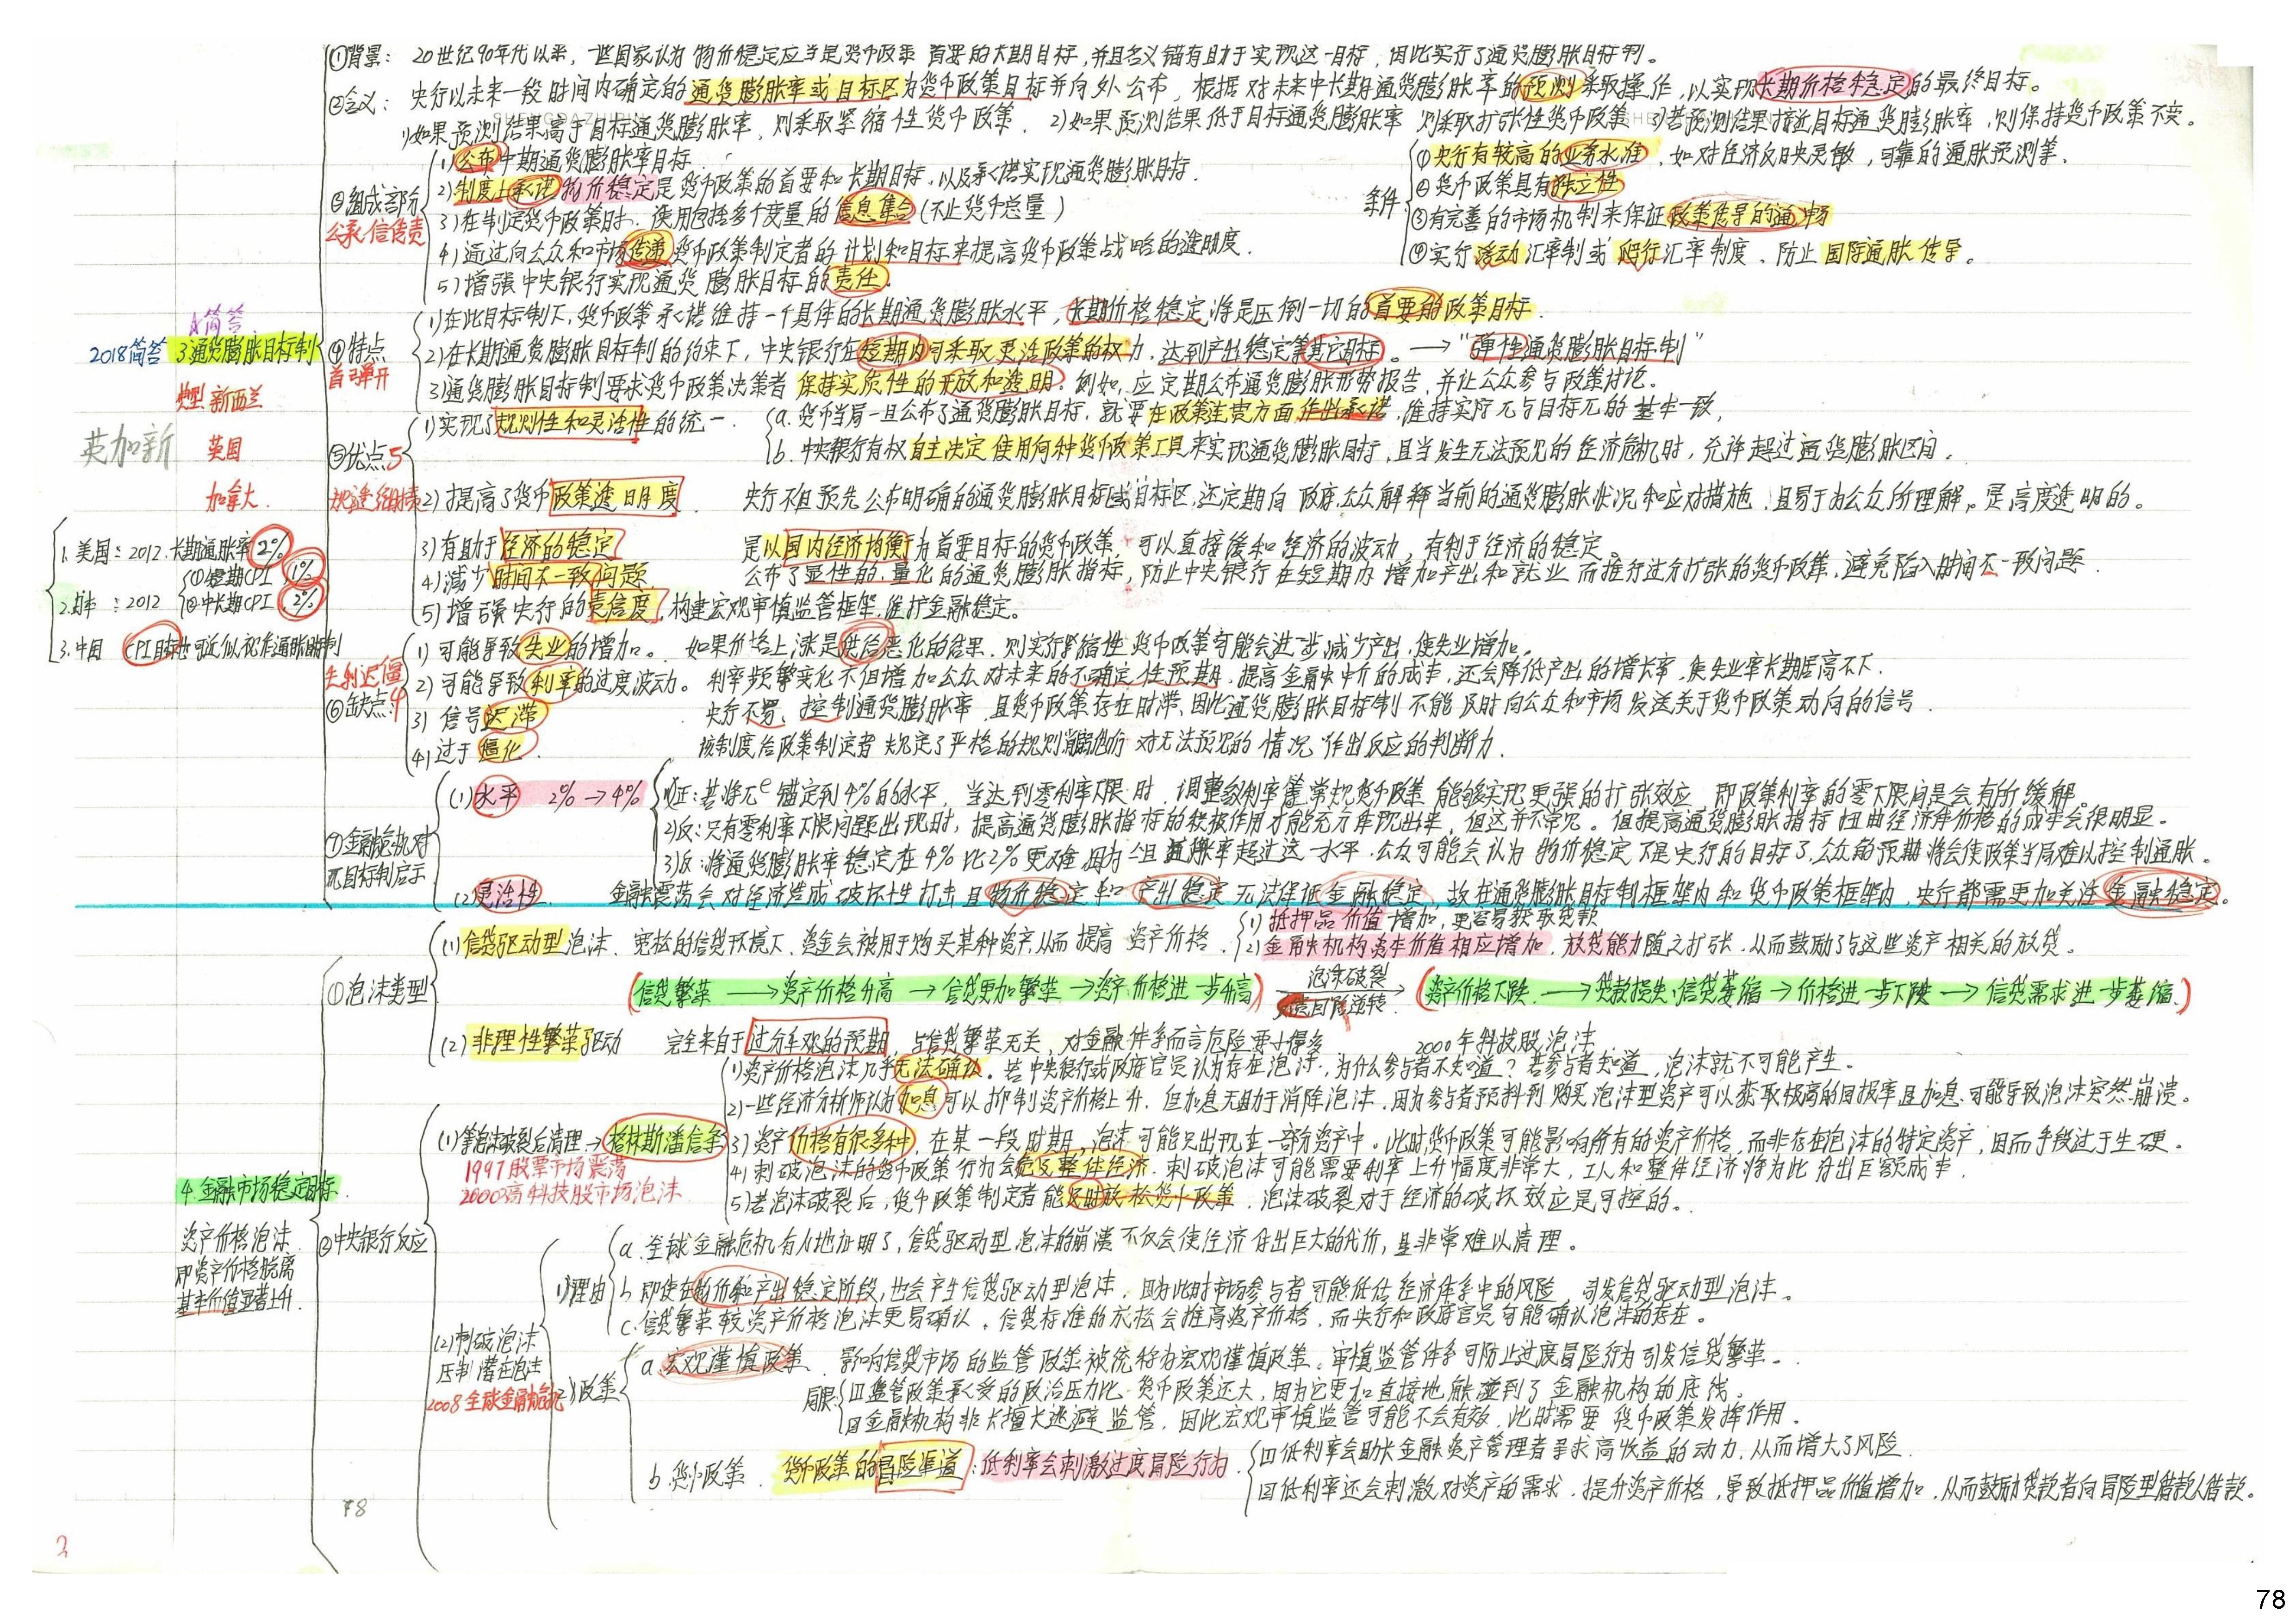 ①背景： 20世纪90年代以来，一些国家认为物价稳定应当是货币政策首要的长期目标，并且名义锚有助于实现这一目标，因此实行了通货膨胀目标制。
②含义： 央行以未来一段时间内确定的通货膨胀率或目标区为货币政策目标并向外公布，根据对未来中长期通货膨胀率的预测采取操作，以实现长期价格稳定的最终目标。
1)如果预测结果高于目标通货膨胀率，则采取紧缩性货币政策。 2)如果预测结果低于目标通货膨胀率 则采取扩张性货币政策 3)若预测结果接近目标通货膨胀率，则保持货币政策不变。
③组成部分
公承信传责
1)公布中期通货膨胀率目标
2)制度上承诺物价稳定是货币政策的首要和长期目标，以及承诺实现通货膨胀目标.
3)在制定货币政策时，使用包括多个变量的信息集合(不止货币总量)
4)通过向公众和市场传递货币政策制定者的计划和目标来提高货币政策战略的透明度.
5)增强中央银行实现通货膨胀目标的责任.
条件
①央行有较高的业务水准，如对经济反映灵敏，可靠的通胀预测等.
②货币政策具有独立性
③有完善的市场机制来保证政策传导的通畅
④实行浮动汇率制或爬行汇率制度、防止国际通胀传导。
A简答
2018简答 3通货膨胀目标制
典型 新西兰
英国
加拿大.
英加新
④特点
首弹开
1)在此目标制下，货币政策承诺维持一个具体的长期通货膨胀水平，长期价格稳定将是压倒一切的首要的政策目标.
2)在长期通货膨胀目标制的约束下，中央银行在短期内可采取更选政策的权力，达到产出稳定等其它目标。→"弹性通货膨胀目标制"
3)通货膨胀目标制要求货币政策决策者 保持实质性的开放和透明.例如，应定期公布通货膨胀形势报告，并让公众参与政策讨论。
⑤优点5
规透经时责
1)实现了规则性和灵活性的统一.
a.货币当局一旦公布了通货膨胀目标，就要在政策连贯方面作出承诺，维持实际π与目标π的基本一致，
b.中央银行有权自主决定使用何种货币政策工具来实现通货膨胀目标，且当发生无法预见的经济危机时，允许超过通货膨胀区间.
2)提高了货币政策透明度. 央行不但预先公布明确的通货膨胀目标或目标区，还定期向政府、公众解释当前的通货膨胀状况和应对措施，且易于为公众所理解。是高度透明的。
3)有助于经济的稳定 是以国内经济均衡为首要目标的货币政策，可以直接缓和经济的波动，有利于经济的稳定。
4)减少时间不一致问题 公布了显性的、量化的通货膨胀指标，防止中央银行在短期内增加产出和就业而推行过分扩张的货币政策，避免陷入时间不一致问题.
5)增强央行的责信度，构建宏观审慎监管框架，维护金融稳定。
1.美国：2012.长期通胀率2%
2.日本：2012 ①短期CPI 1%
②中长期CPI 2%
3.中国 CPI目标也可近似视作通胀目标制
失利迟僵
⑥缺点：4
1)可能导致失业的增加。 如果价格上涨是供给恶化的结果，则实行紧缩性货币政策可能会进一步减少产出，使失业增加。
2)可能导致利率的过度波动。 利率频繁变化不但增加公众对未来的不确定性预期，提高金融中介的成本，还会降低产出的增长率，使失业率长期居高不下.
3)信号迟滞 央行不易控制通货膨胀率，且货币政策存在时滞、因此通货膨胀目标制不能及时向公众和市场发送关于货币政策动向的信号.
4)过于僵化. 该制度给政策制定者规定了严格的规则，消弱他们对无法预见的情况作出反应的判断力.
⑦金融危机对
π目标制启示
(1)水平 2%→4%
1)正：若将πe锚定到4%的水平，当达到零利率下限时，调整名义利率等常规货币政策能够实现更强的扩张效应，即政策利率的零下限问题会有所缓解。
2)反：只有零利率下限问题出现时，提高通货膨胀指标的积极作用才能充分体现出来，但这并不常见。但提高通货膨胀指标扭曲经济体价格的成本会很明显。
3)反：将通货膨胀率稳定在4%比2%更难 因为一旦通胀率超过这一水平，公众可能会认为物价稳定不是央行的目标了，公众的预期将会使政策当局难以控制通胀。
(2)灵活性. 金融震荡会对经济造成破坏性打击 且物价稳定和产出稳定无法保证金融稳定，故在通货膨胀目标制框架内和货币政策框架内，央行都需更加关注金融稳定。
4.金融市场稳定目标
资产价格泡沫
即资产价格脱离
基本价值显著上升.
①泡沫类型
(1)信贷驱动型泡沫. 宽松的信贷环境下、资金会被用于购买某种资产，从而提高资产价格.
1)抵押品价值增加，更容易获取贷款
2)金融机构资本价值相应增加，放贷能力随之扩张，从而鼓励了与这些资产相关的放贷。
(信贷繁荣→资产价格升高→信贷更加繁荣→资产价格进一步升高) 泡沫破裂 反馈回路逆转 (资产价格下跌.→贷款损失，信贷萎缩→价格进一步下跌→信贷需求进一步萎缩.)
(2)非理性繁荣驱动 完全来自于过分乐观的预期，与信贷繁荣无关，对金融体系而言危险要小得多 2000年科技股泡沫.
②中央银行反应
(1)等泡沫破裂后清理→格林斯潘信条
1997股票市场震荡
2000高科技股市场泡沫
1)资产价格泡沫几乎无法确认。若中央银行或政府官员认为存在泡沫，为什么参与者不知道？若参与者知道，泡沫就不可能产生。
2)一些经济分析师认为加息可以抑制资产价格上升，但加息无助于消除泡沫，因为参与者预料到购买泡沫型资产可以获取极高的回报率且加息可能导致泡沫突然崩溃。
3)资产价格有很多种，在某一段时期，泡沫可能只出现在一部分资产中。此时货币政策可能影响所有的资产价格，而非存在泡沫的特定资产，因而手段过于生硬。
4)刺破泡沫的货币政策行为会危及整体经济.刺破泡沫可能需要利率上升幅度非常大，工人和整体经济将为此付出巨额成本.
5)若泡沫破裂后，货币政策制定者能及时放松货币政策，泡沫破裂对于经济的破坏效应是可控的。
(2)刺破泡沫
压制潜在泡沫
2008全球金融危机
1)理由
a.全球金融危机有力地证明了，信贷驱动型泡沫的崩溃不仅会使经济付出巨大的代价，且非常难以清理。
b.即使在物价和产出稳定阶段，也会产生信贷驱动型泡沫，因为此时市场参与者可能低估经济体系中的风险，引发信贷驱动型泡沫。
c.信贷繁荣较资产价格泡沫更易确认，信贷标准的放松会推高资产价格，而央行和政府官员可能确认泡沫的存在。
2)政策
a.宏观谨慎政策. 影响信贷市场的监管政策被统称为宏观谨慎政策。审慎监管体系可防止过度冒险行为引发信贷繁荣.
局限
监管政策承受的政治压力比货币政策还大，因为它更加直接地触碰到了金融机构的底线。
金融机构非长擅长逃避监管，因此宏观审慎监管可能不会有效，此时需要货币政策发挥作用.
b.货币政策. 货币政策的冒险渠道：低利率会刺激过度冒险行为.
低利率会助长金融资产管理者寻求高收益的动力，从而增大了风险.
低利率还会刺激对资产的需求，提升资产价格，导致抵押品价值增加，从而鼓励贷款者向冒险型借款人借款。
78
2
78